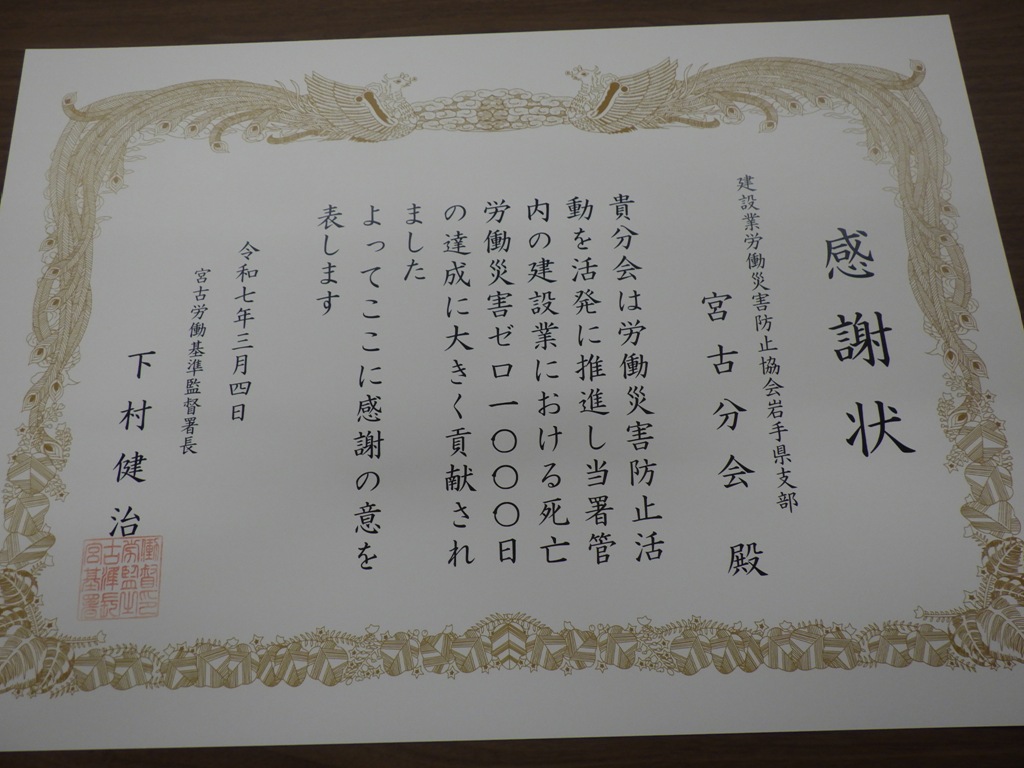 感謝状
建設業労働災害防止協会岩手県支部
宮古分会 殿
貴分会は労働災害防止活
動を活発に推進し当署管
内の建設業における死亡
労働災害ゼロ一〇〇〇日
の達成に大きく貢献され
ました
よってここに感謝の意を
表します
令和七年三月四日
宮古労働基準監督署長
下村健治